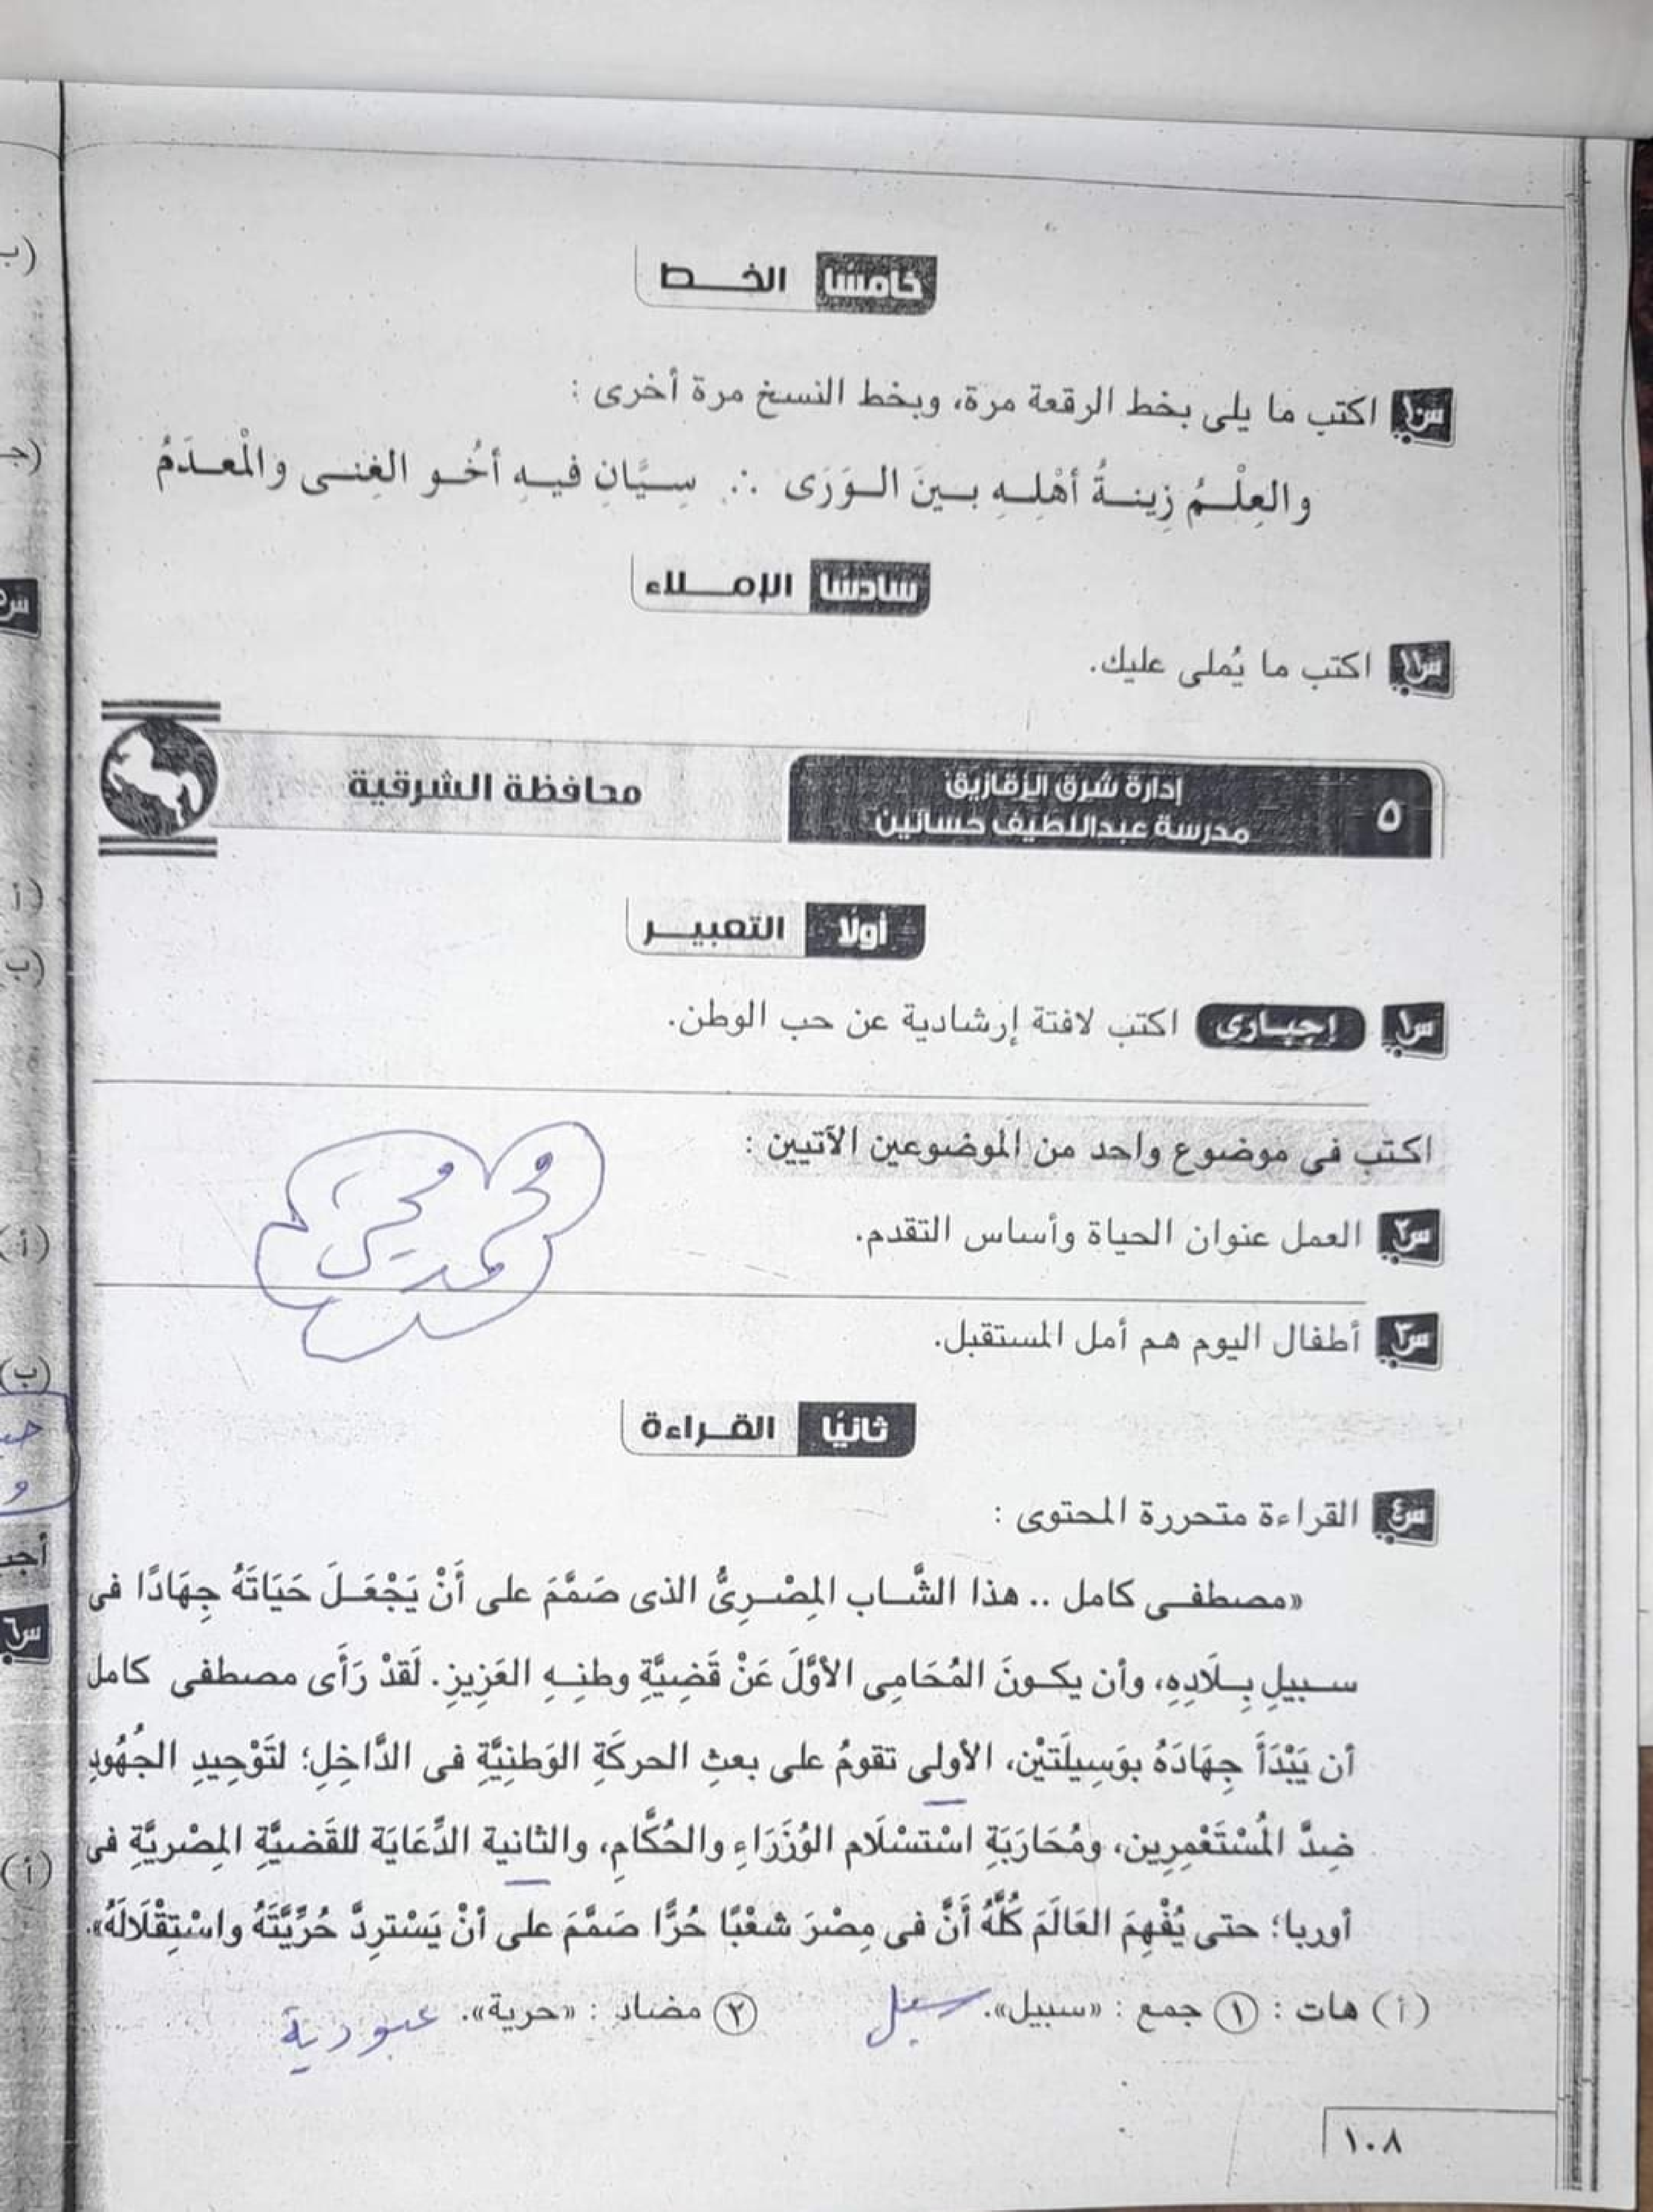 خامسًا الخـــط
س١٠ اكتب ما يلى بخط الرقعة مرة، وبخط النسخ مرة أخرى :
والعِلْـمُ زِينـةُ أهْلِـهِ بـينَ الـوَرَى ∴ سِـيَّانِ فيـهِ أخُـو الغِنـى والْمعـدَمُ
سادسًا الإمـــلاء
س١١ اكتب ما يُملى عليك.
٥ إدارة شرق الزقازيق محافظة الشرقية
مدرسة عبداللطيف حسانين
أولًا التعبيـــر
س١ إجبـارى اكتب لافتة إرشادية عن حب الوطن.
اكتب فى موضوع واحد من الموضوعين الآتيين :
س٢ العمل عنوان الحياة وأساس التقدم.
س٣ أطفال اليوم هم أمل المستقبل.
ثانيًا القـراءة
س٤ القراءة متحررة المحتوى :
«مصطفـى كامل .. هذا الشَّـاب المِصْـرِىُّ الذى صَمَّمَ على أَنْ يَجْعَـلَ حَيَاتَهُ جِهَادًا فى
سـبيلِ بِـلَادِهِ، وأن يكـونَ المُحَامِى الأوَّلَ عَنْ قَضِيَّةِ وطنِـهِ العَزِيزِ. لَقَدْ رَأَى مصطفى كامل
أن يَبْدَأَ جِهَادَهُ بوَسِيلَتَيْن، الأولى تقومُ على بعثِ الحركَةِ الوَطنِيَّةِ فى الدَّاخِلِ؛ لتَوْحِيدِ الجُهُودِ
ضِدَّ المُسْتَعْمِرِين، ومُحَارَبَةِ اسْتسْلَام الوُزَرَاءِ والحُكَّامِ، والثانية الدِّعَايَة للقَضيَّةِ المِصْريَّةِ فى
أوربا؛ حتى يُفْهِمَ العَالَمَ كُلَّهُ أَنَّ فى مِصْرَ شعْبًا حُرًّا صَمَّمَ على أنْ يَسْترِدَّ حُرِّيَّتَهُ واسْتِقْلَالَهُ».
(أ) هات : ١ جمع : «سبيل». سبل ٢ مضاد : «حرية». عبودية
١٠٨